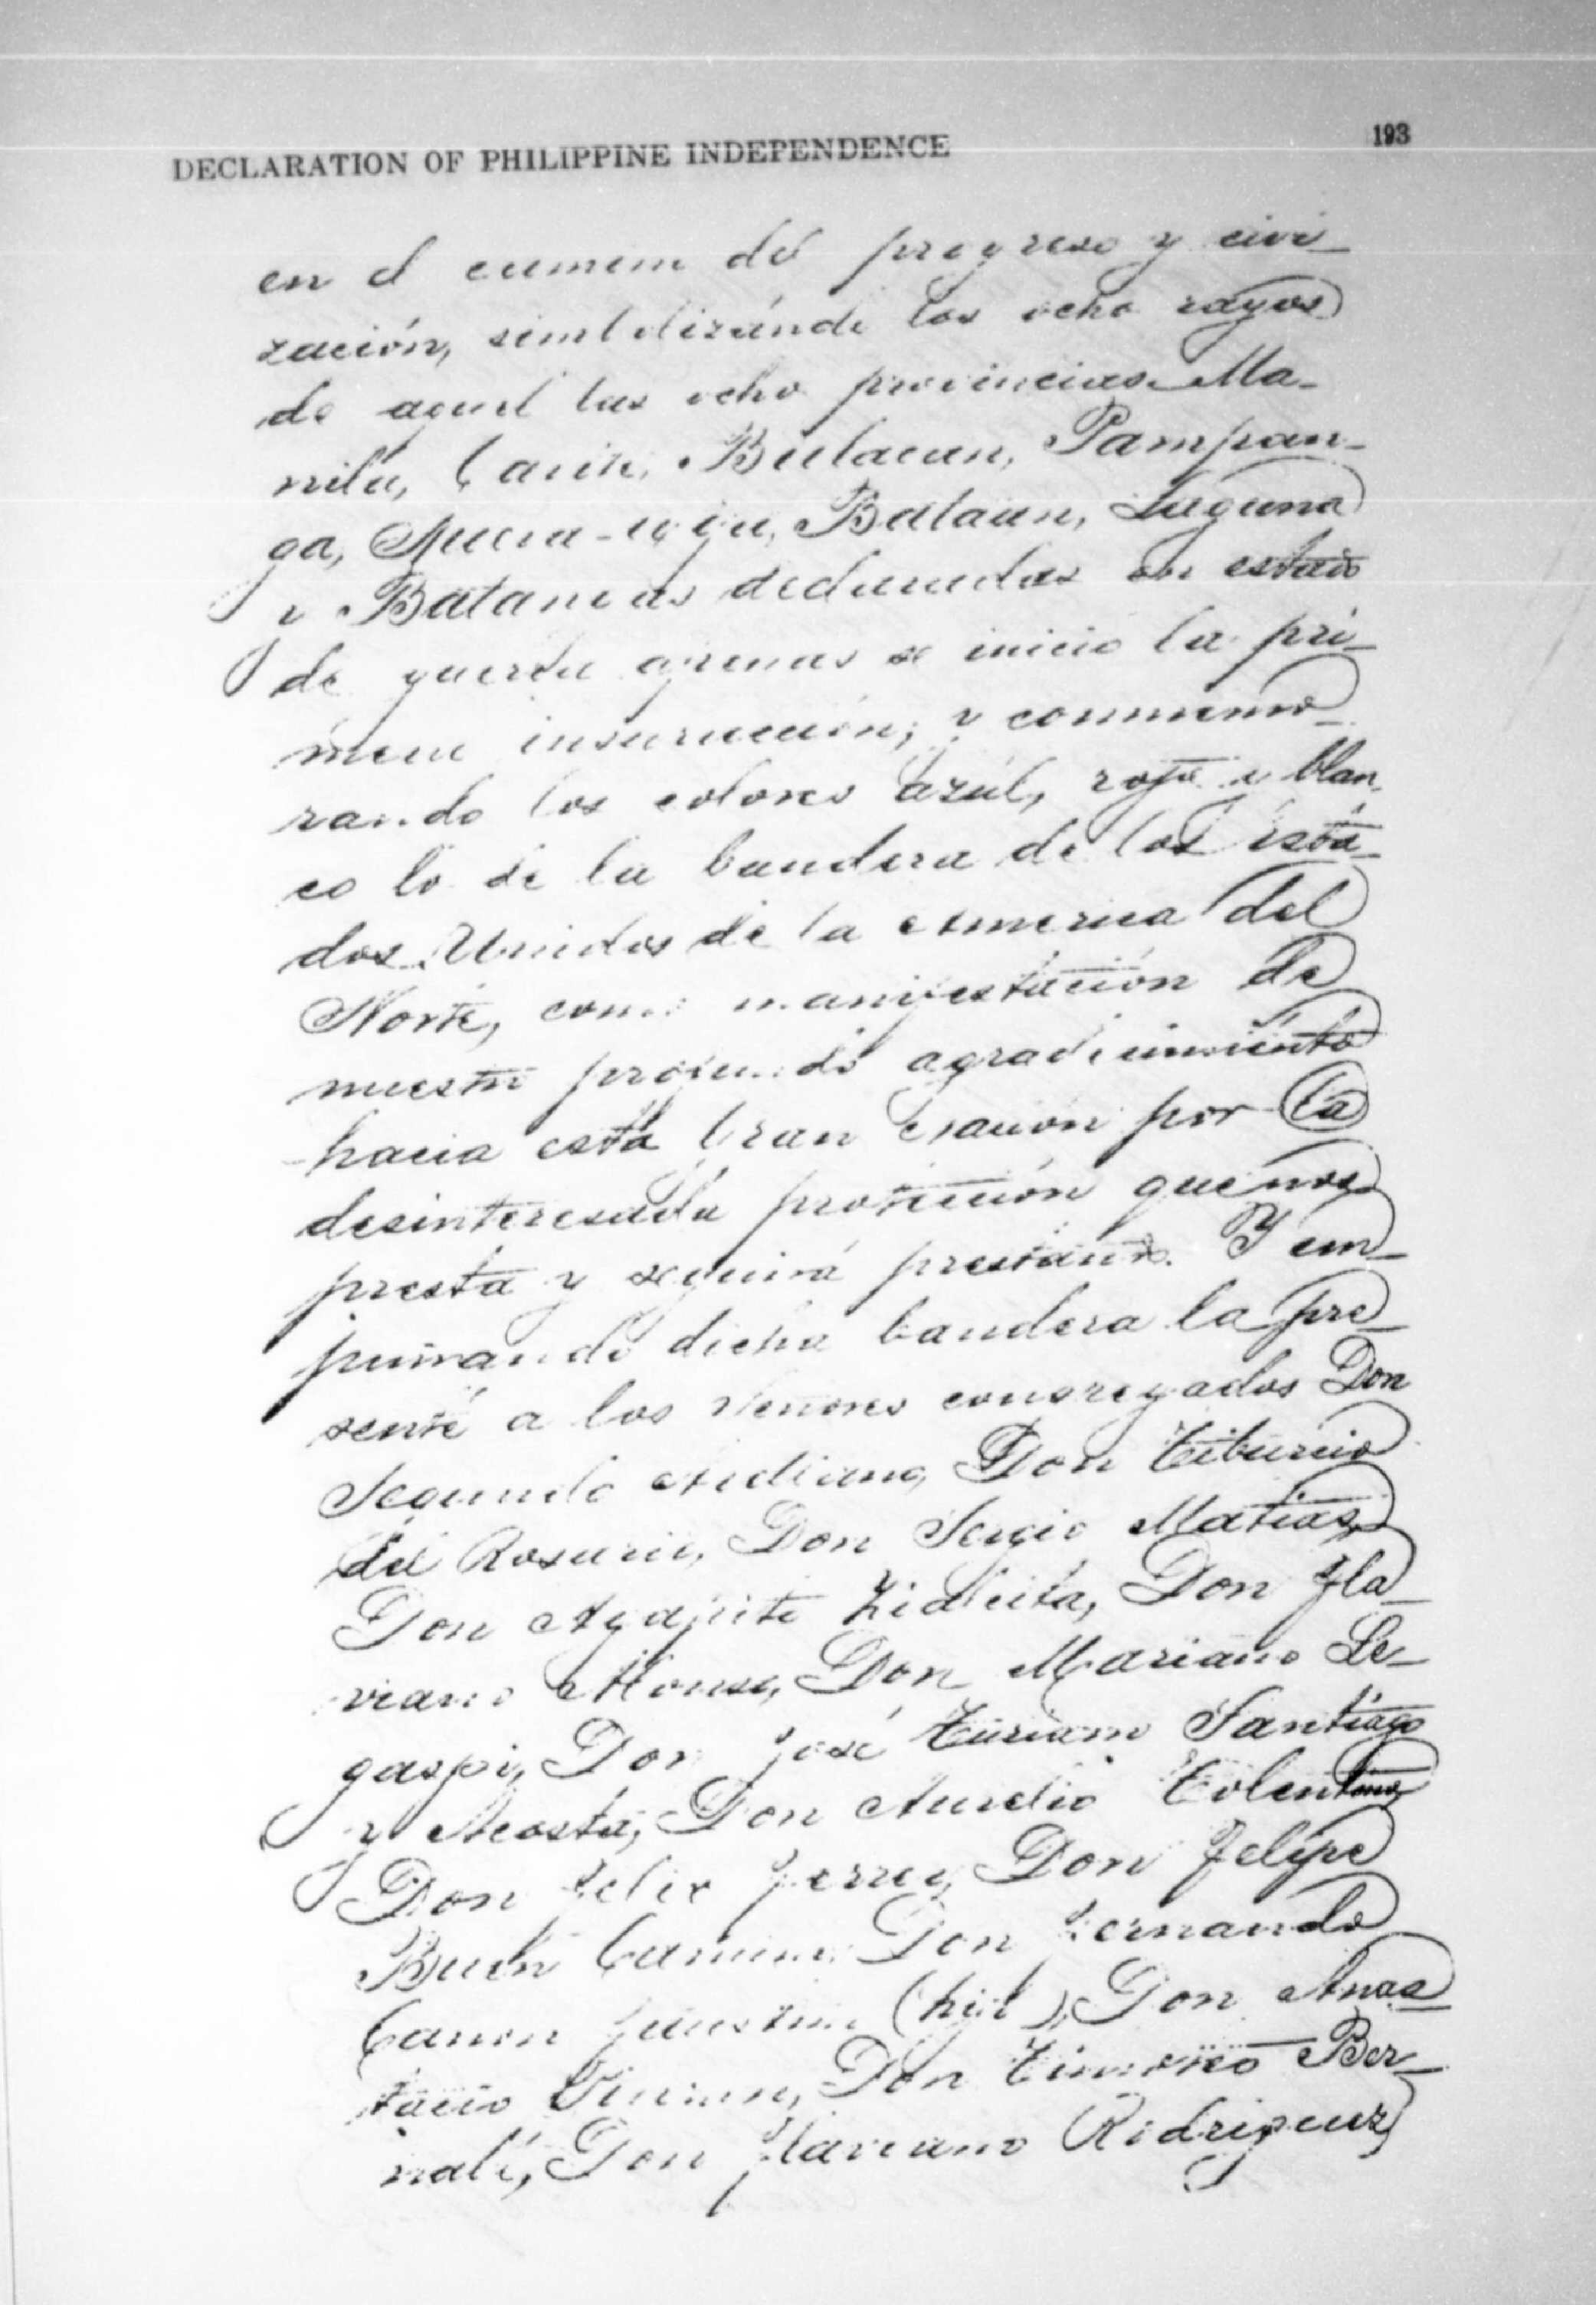 DECLARATION OF PHILIPPINE INDEPENDENCE 193
en el camino del progreso y civi-
zación, simbolizándo los ocho rayos
de aquel las ocho provincias Ma-
nila, Cavite, Bulacan, Pampan-
ga, Nueva-ecija, Bataan, Laguna
y Batangas declaradas en estado
de guerra apenas se inicio la pri-
mera insurrección; y conmemo-
rando los colores azúl, rojo y blan-
co lo de la bandera de los Esta-
dos Unidos de la America del
Norte, como manifestación de
nuestro profundo agradecimiento
hacia esta Gran Nación por la
desinteresada protección que nos
presta y seguirá prestando. Y em-
puñando dicha bandera la pre-
senté a los Señores congregados Don
Segundo Arellano, Don Tiburcio
del Rosario, Don Sergio Matias,
Don Agapito Zialcita, Don Fla-
viano Alonso, Don Mariano Le-
gaspi, Don José Turiano Santiago
y Acosta, Don Aurelio Tolentino,
Don Felix Ferrer, Don Felipe
Buen Camino Don Fernando
Canon Faustino (hijo), Don Anas-
tacio Pinzon, Don Timoteo Ber-
nabé, Don Flaviano Rodriguez